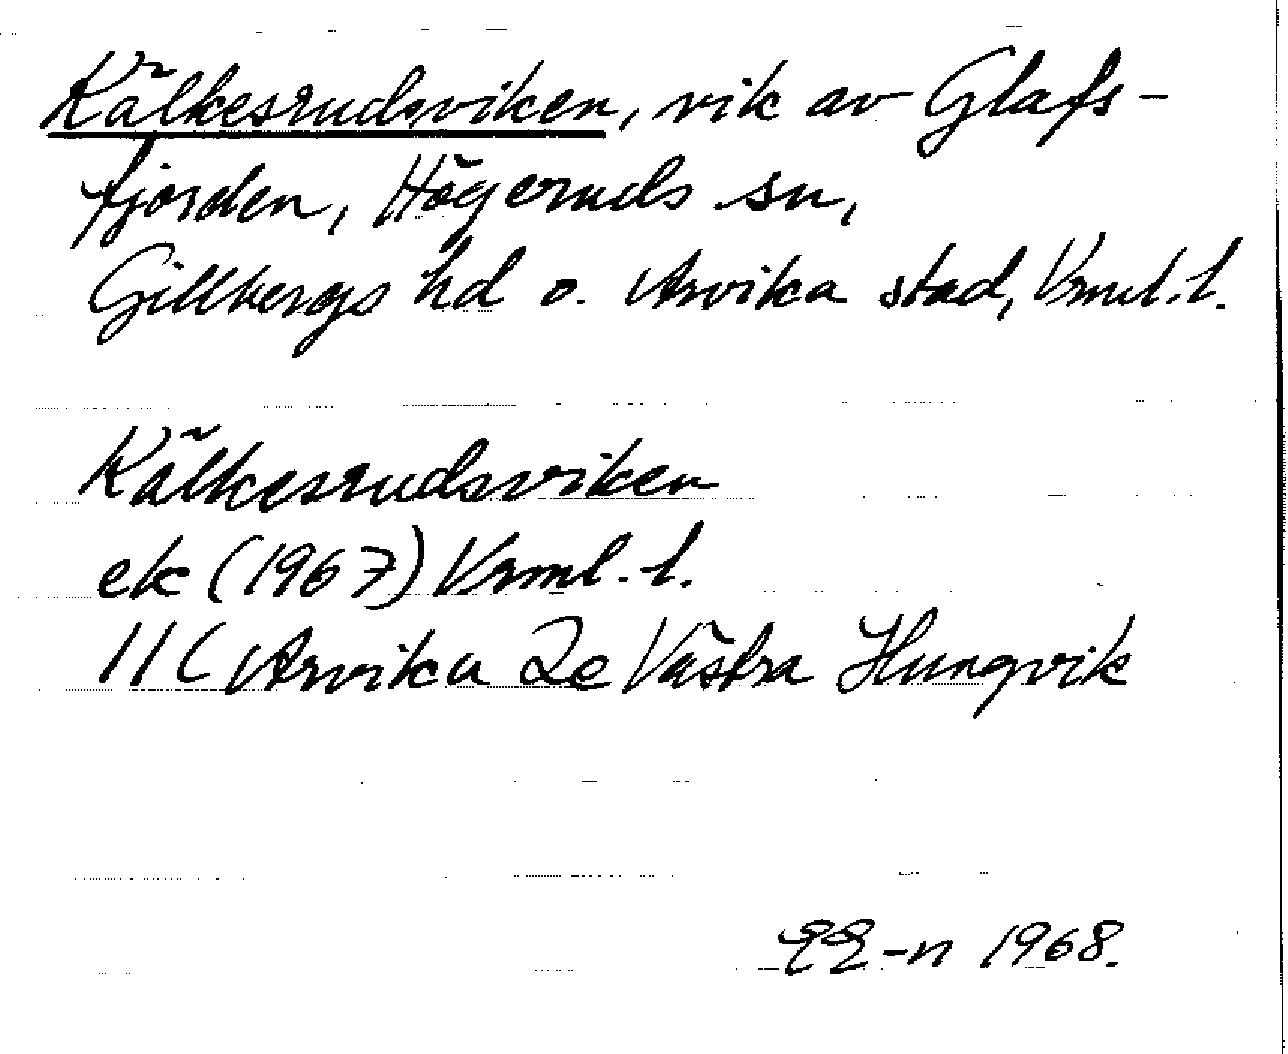 Kälkesrudsviken, vik av Glafs-
fjorden, Högeruds sn,
Gillbergs hd o. Arvika stad, Vrml. l.
Kälkesrudsviken
ek (1967) Vrml. l.
11C Arvika 2c Västra Hungvik
EE-n 1968.